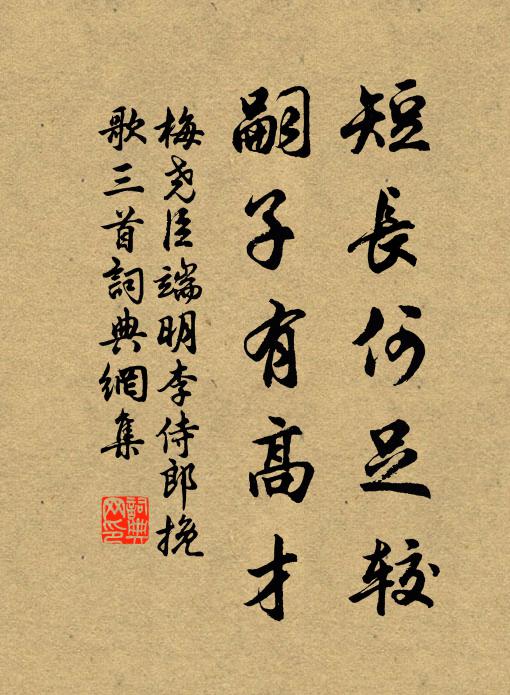 短長何足较
嗣子有高才
梅尧臣端明李侍郎挽
歌三首詞典網集
詞典网印